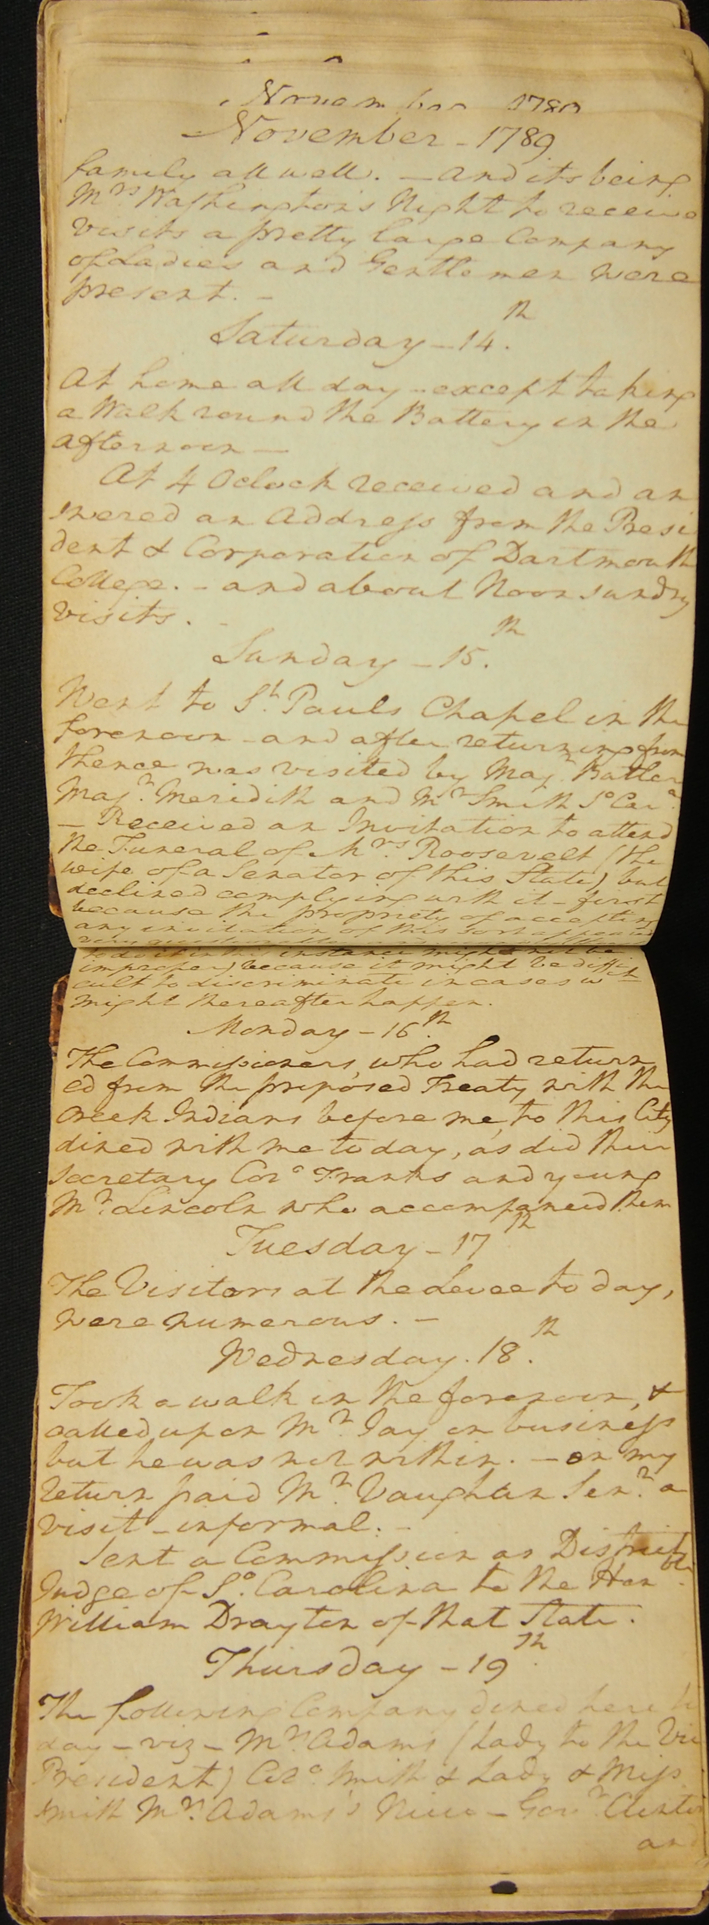 November 1789
November - 1789
family all well. - and its being
Mrs Washington's Night to receive
visits a pretty large Company
of Ladies and Gentlemen were
present. -
Saturday - 14.th
At home all day - except taking
a Walk round the Battery in the
afternoon -
At 4 Oclock received and an
swered an Address from the Presi
dent & Corporation of Dartmouth
College. - and about Noon sundry
visits. -
Sunday - 15.th
Went to St. Pauls Chapel in the
forenoon - and after returning from
thence was visited by Majr. Butler
Majr. Meridith and Mr Smith So Car.a
- Received an Invitation to attend
the Funeral of Mrs Roosevelt (the
wife of a Senator of this State) but
declined complying with it - first
because the propriety of accepting
any invitation of this sort appeared
very
to do it in this instance might not be
improper) because it might be diffi
cult to discriminate in cases wch
might thereafter happen.
Monday - 16.th
The Commissioners, who had return
ed from the proposed Treaty with the
Creek Indians before me, to this City
dined with me to day, as did their
Secretary Colo Franks and young
Mr. Lincoln who accompanied them
Tuesday - 17th
The Visitors at the Levee to day,
were numerous. -
Wednesday. 18.th
Took a walk in the forenoon, &
called upon Mr. Jay on business
but he was not within. - on my
return paid Mr. Vaughan Senr. a
visit - informal. -
Sent a Commission as District
Judge of So. Carolina to the Honble.
William Drayton of that State.
Thursday - 19th.
The following Company dined here to
day - viz - Mrs. Adams (Lady to the Vice
President) Colo Smith & Lady & Miss
Smith Mrs. Adams's Niece - Govr. Clinton
and